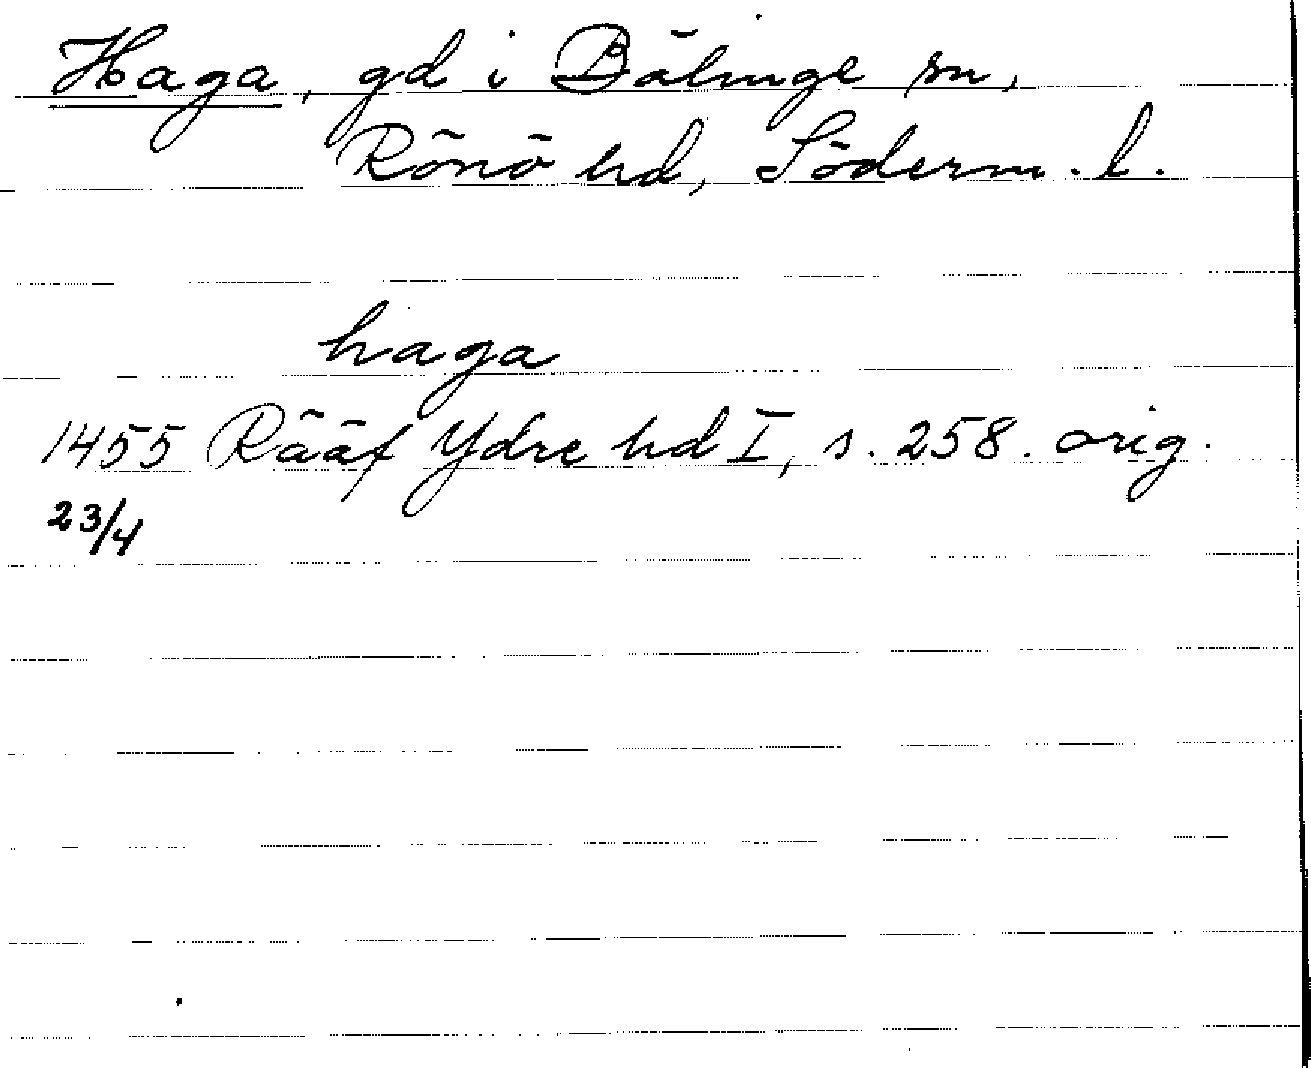 Haga, gd i Bälinge sn,
Rönö hd, Söderm. l.
haga
1455 Rääf Ydre hd I, s. 258. orig.
23/4